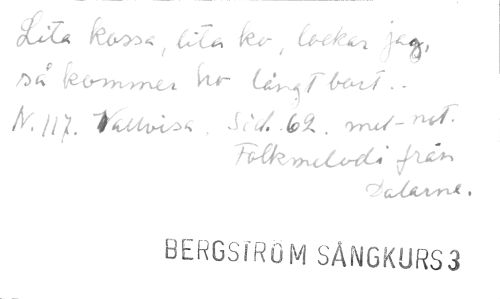 Lita kossa, lita ko, lockar jag,
så kommer ko långt bort..
N. 117. Vallvisa. Sid. 62. mel-not.
Folkmelodi från
Dalarne.
BERGSTRÖM SÅNGKURS 3